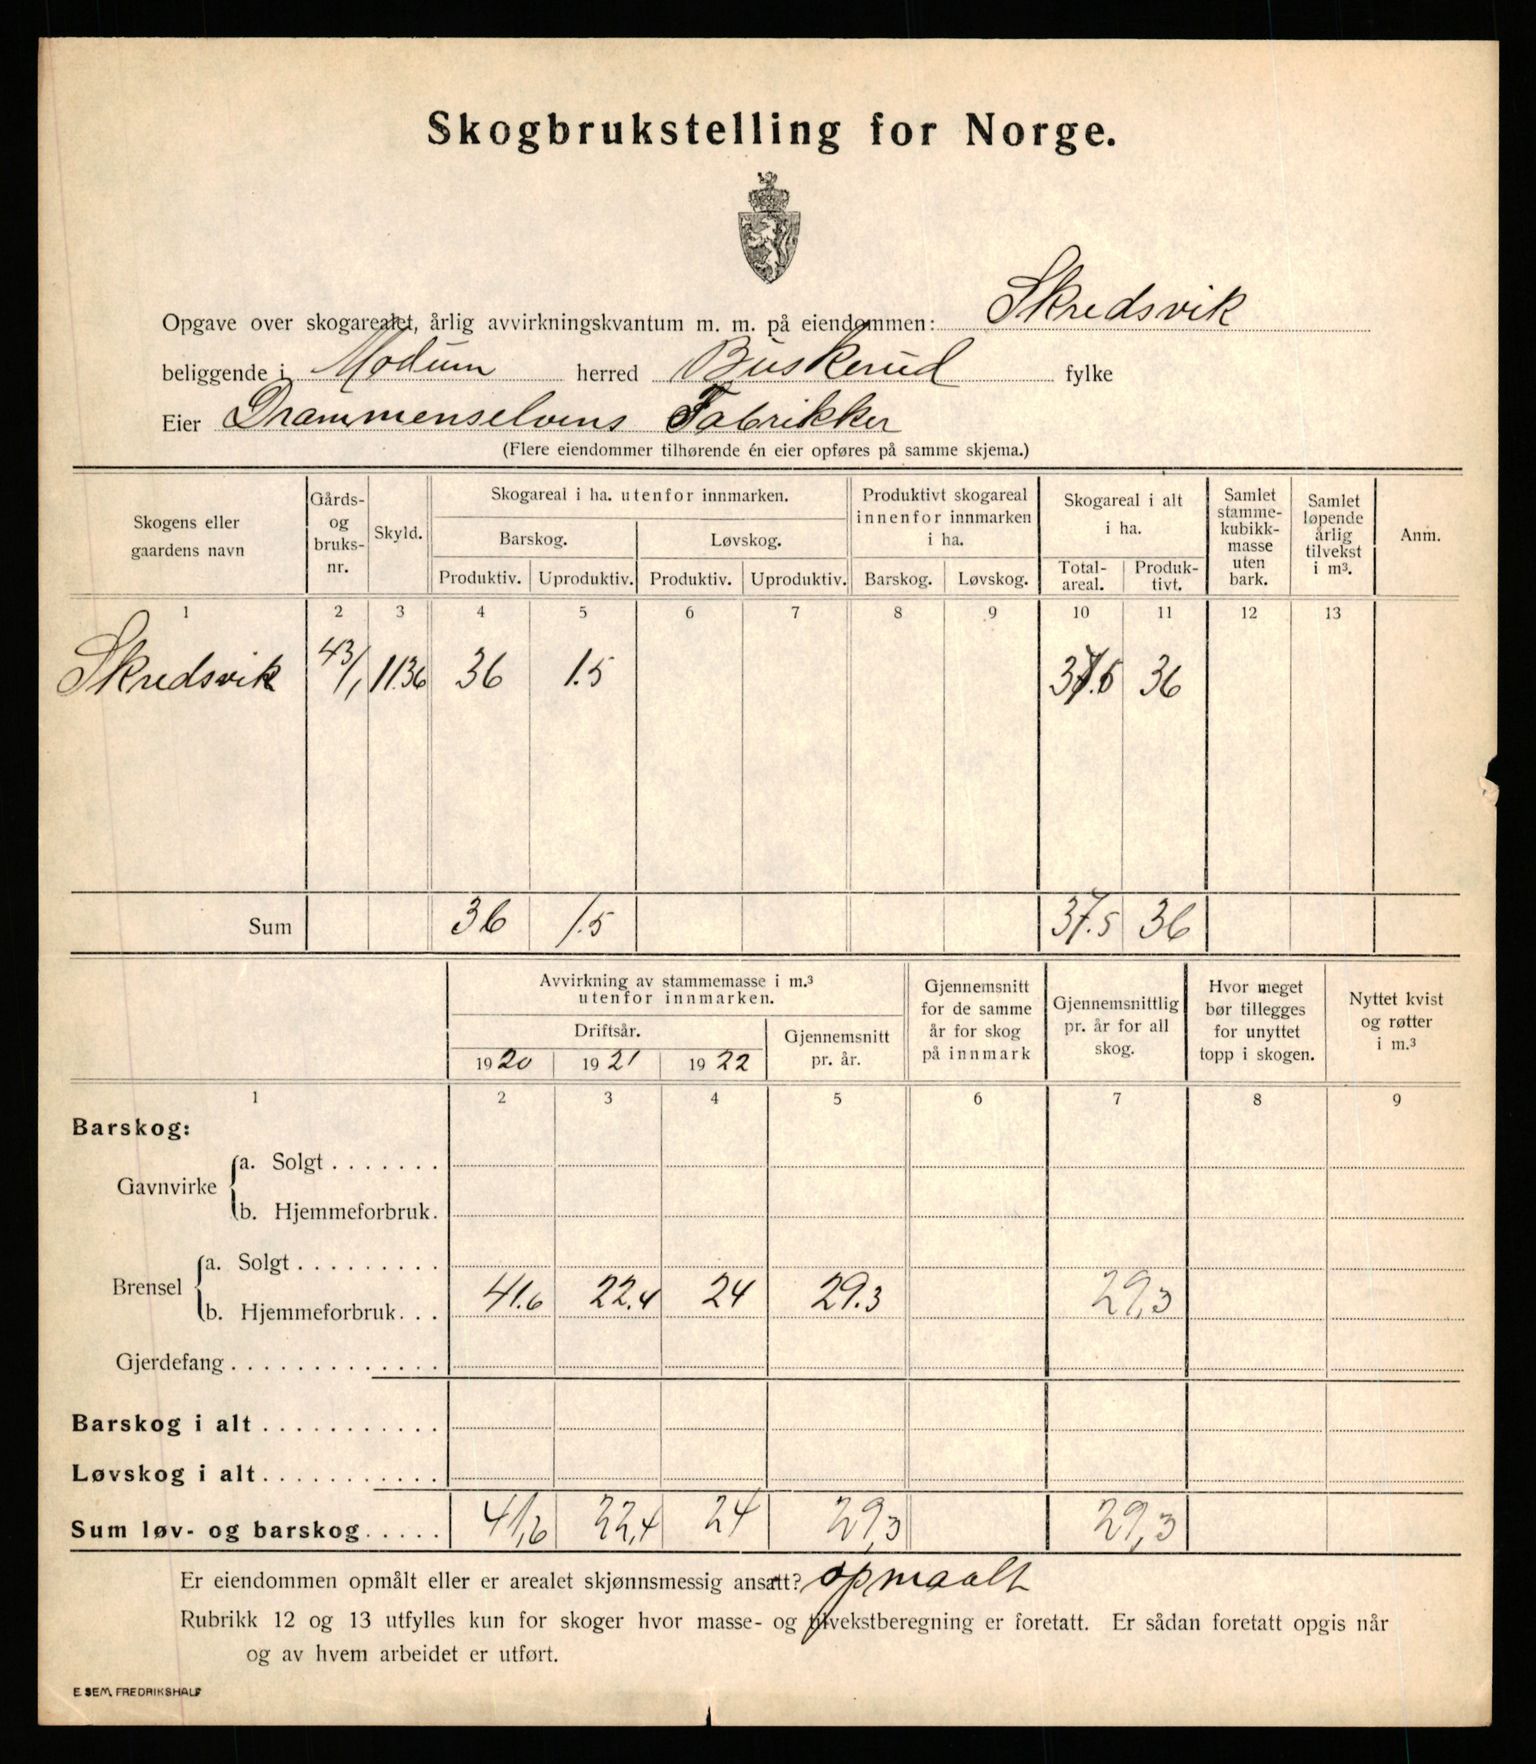 Skogbrukstelling for Norge.
Opgave over skogarealet, årlig avvirkningskvantum m. m. på eiendommen: Skredsvik
beliggende i Modum herred Buskerud fylke
Eier Drammenselvens Fabrikker
(Flere eiendommer tilhørende én eier opføres på samme skjema.)
Skogens eller
gaardens navn
Gårds-
og
bruks-
nr.
Skyld.
Skogareal i ha. utenfor innmarken.
Barskog.
Løvskog.
Produktiv. Uproduktiv. Produktiv. Uproduktiv.
Produktivt skogareal
innenfor innmarken
i ha.
Barskog. Løvskog.
Skogareal i alt
i ha.
Total-
areal.
Produk-
tivt.
Samlet
stamme-
kubikk-
masse
uten
bark.
Samlet
løpende
årlig
tilvekst
i m³.
Anm.
1 2 3 4 5 6 7 8 9 10 11 12 13
Skredsvik 43/1 11.36 36 1.5 37.5 36
Sum 36 1.5 37.5 36
Avvirkning av stammemasse i m.³
utenfor innmarken.
Driftsår.
1920 1921 1922
Gjennemsnitt
pr. år.
Gjennemsnitt
for de samme
år for skog
på innmark
Gjennemsnittlig
pr. år for all
skog.
Hvor meget
bør tillegges
for unyttet
topp i skogen.
Nyttet kvist
og røtter
i m.³
1 2 3 4 5 6 7 8 9
Barskog:
Gavnvirke
a. Solgt . . . . . . .
b. Hjemmeforbruk.
Brensel
a. Solgt . . . . . . . . .
b. Hjemmeforbruk. . . 41.6 22.4 24 29.3 29,3
Gjerdefang . . . . . . . . . . . . .
Barskog i alt . . . . . . . . . . .
Løvskog i alt. . . . . . . . . . . .
Sum løv- og barskog. . . . . 41,6 22,4 24 29,3 29,3
Er eiendommen opmålt eller er arealet skjønnsmessig ansatt? opmaalt
Rubrikk 12 og 13 utfylles kun for skoger hvor masse- og tilvekstberegning er foretatt. Er sådan foretatt opgis når
og av hvem arbeidet er utført.
E. SEM, FREDRIKSHALD